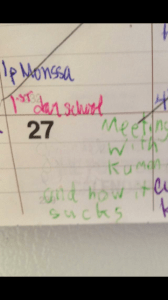 1st day school
27
Meeting
with
Kumon
and how it
sucks